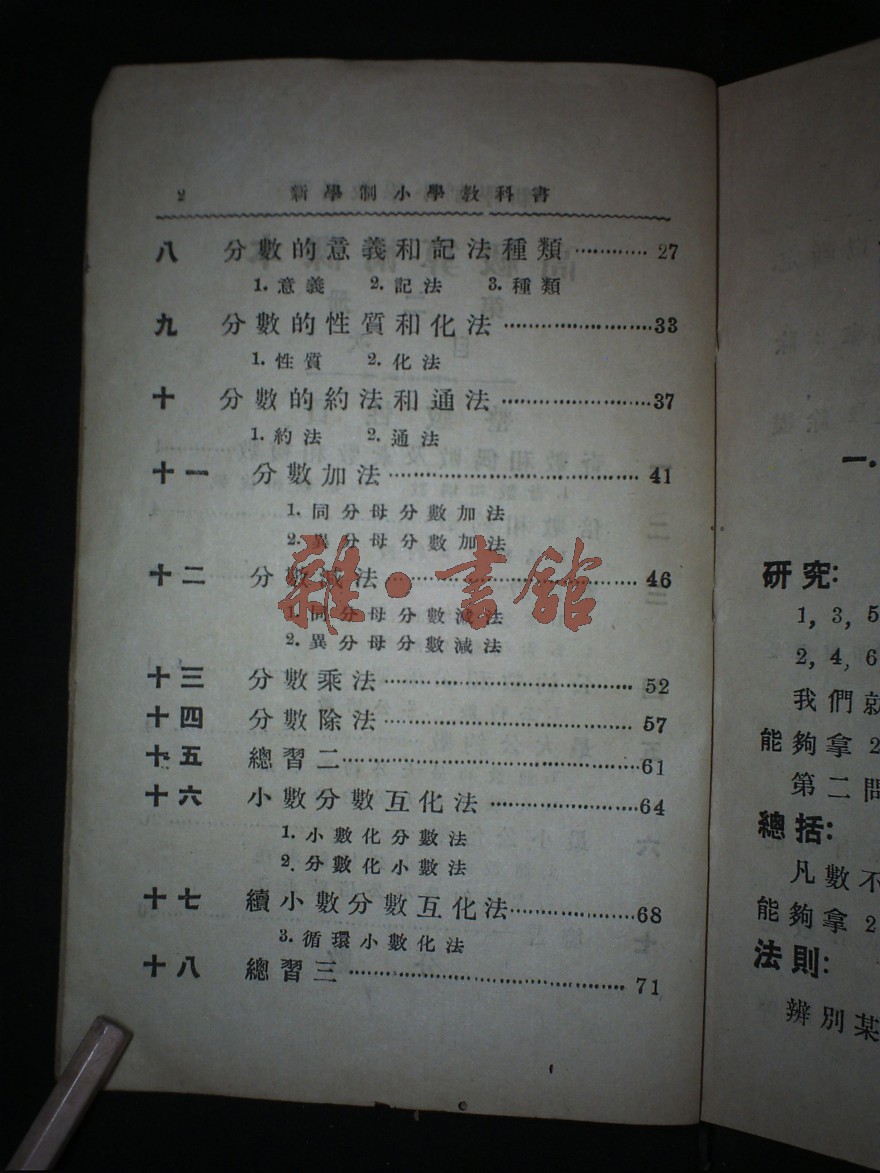 2 新學制小學教科書
八 分數的意義和記法種類 ………… 27
1. 意義 2. 記法 3. 種類
九 分數的性質和化法 ………… 33
1. 性質 2. 化法
十 分數的約法和通法 ………… 37
1. 約法 2. 通法
十一 分數加法 ………… 41
1. 同分母分數加法
2. 異分母分數加法
十二 分數減法 ………… 46
1. 同分母分數減法
2. 異分母分數減法
十三 分數乘法 ………… 52
十四 分數除法 ………… 57
十五 總習二 ………… 61
十六 小數分數互化法 ………… 64
1. 小數化分數法
2. 分數化小數法
十七 續小數分數互化法 ………… 68
3. 循環小數化法
十八 總習三 ………… 71
雜·書館
一.
研究:
1, 3, 5
2, 4, 6
我們就
能夠拿 2
第二問
總括:
凡數不
能夠拿 2
法則:
辨別某